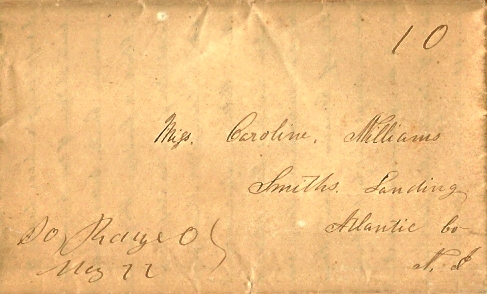 10
Miss. Caroline. Williams
Smiths. Landing
Atlantic Co
N. J
So Range O
May 22